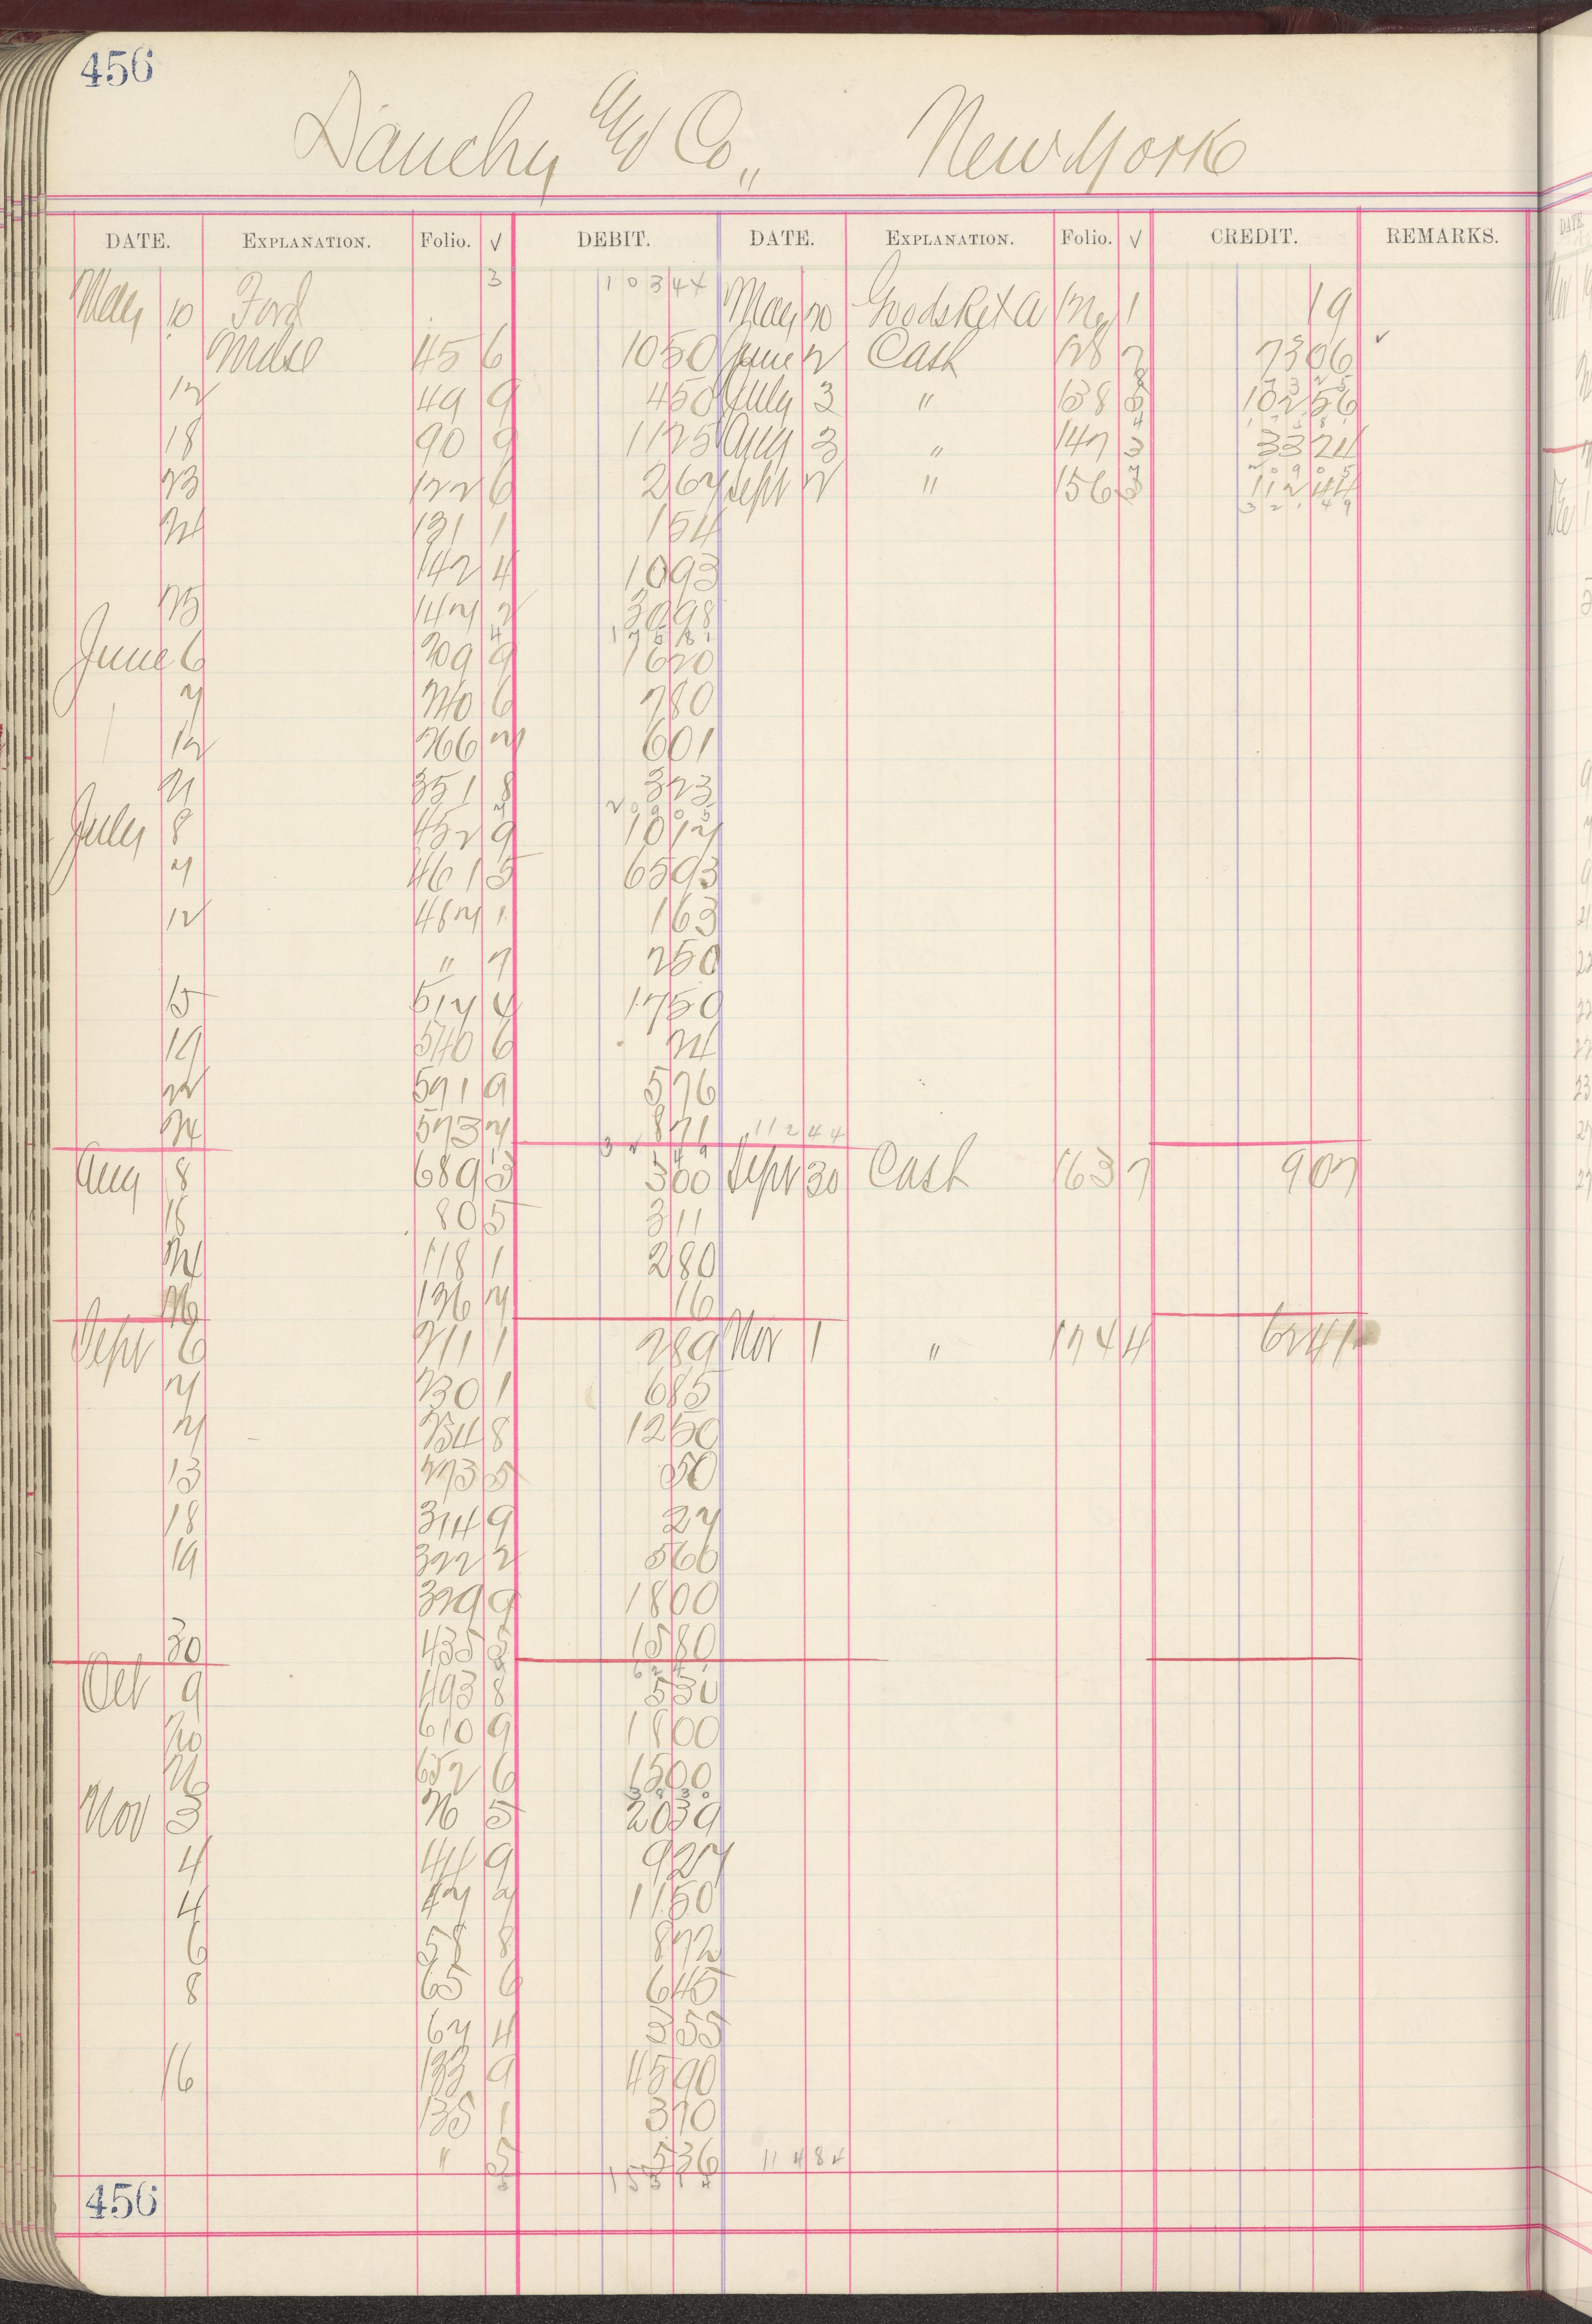 456
Dauchy & Co,, New York
DATE. EXPLANATION. Folio. √ DEBIT. DATE. EXPLANATION. Folio. √ CREDIT. REMARKS.
3 103 44
May 10 Ford May 20 Goods Ret'd 1 19
Mdse 45 6 10 50 June 2 Cash 128 2 73 06 ✓
12 49 9 4 50 July 3 " 138 182 56
18 90 9 11 25 Aug 3 " 147 3 33 24
23 122 6 2 67 Sept 2 " 156 3 112 44
24 131 1 1 54
142 4 10 93
25 147 30 98
June 6 209 9 16 20
7 240 6 7 80
12 266 7 6 01
21 351 8 3 23
July 8 452 9 10 17
7 461 5 65 93
12 487 1 1 63
" 7 2 50
15 517 4 17 50
19 540 6 24
22 571 9 5 76
24 573 7 8 71 112 44
Aug 8 689 3 3 00 Sept 30 Cash 163 7 9 07
16 80 5 3 11
24 118 1 2 80
26 136 7 16
Sept 6 211 1 2 89 Nov 1 " 174 4 62 41
7 230 1 6 85
7 234 8 12 50
13 273 5 50
18 314 9 27
19 322 2 5 60
329 9 18 00
30 435 15 80
Oct 9 493 8 5 50
20 610 9 18 00
26 652 6 15 00
Nov 3 26 5 20 39
4 44 9 9 27
4 47 7 11 50
6 58 8 8 72
8 65 6 6 45
67 4 3 55
16 133 9 45 90
135 1 3 70
" 5 5 36 114 84
456